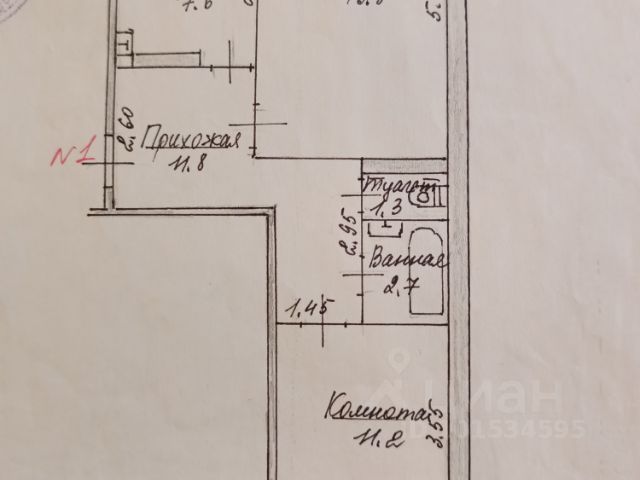 7.6
2,60
Прихожая
11.8
N1
Туалет
1,3
2,95
Ванная
2,7
1.45
Комната
11.2
3.55
циан